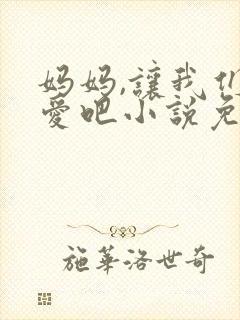 妈妈,讓我们
愛吧小說免
施華洛世奇